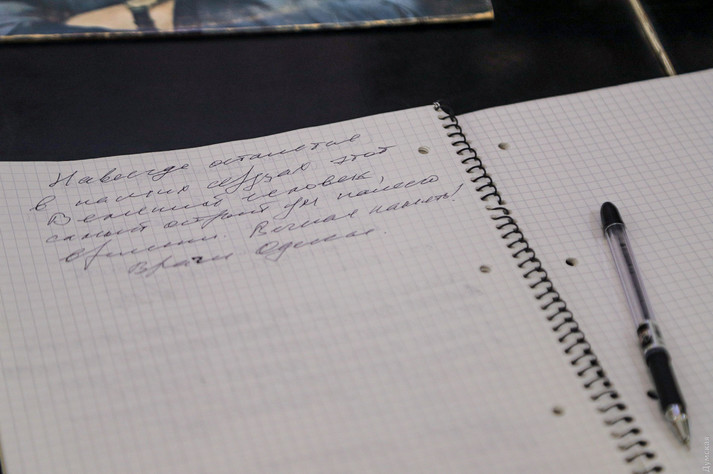 Навсегда останется
в наших сердцах этот
Великий человек,
самый острый ум нашего
времени. Вечная память!
Врачи Одессы.
Думская